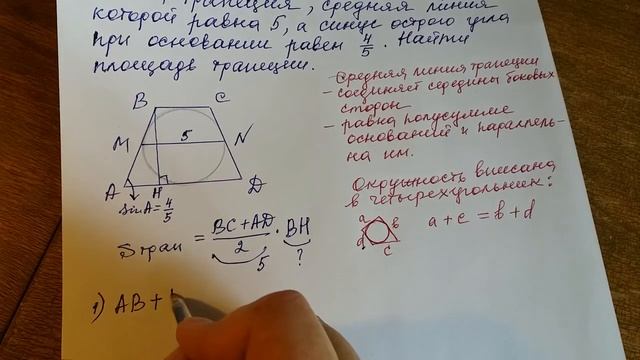 трапеция, средняя линия
которой равна 5, а синус острого угла
при основании равен 4/5. Найти
площадь трапеции.
B C
M 5 N
A H D
sin A = 4/5
Sтрап = BC + AD / 2 · BH
5 ?
1) AB +
Средняя линия трапеции
- соединяет середины боковых
сторон
- равна полусумме
оснований и параллель-
на им.
Окружность вписана
в четырехугольник:
a b c d
a + c = b + d